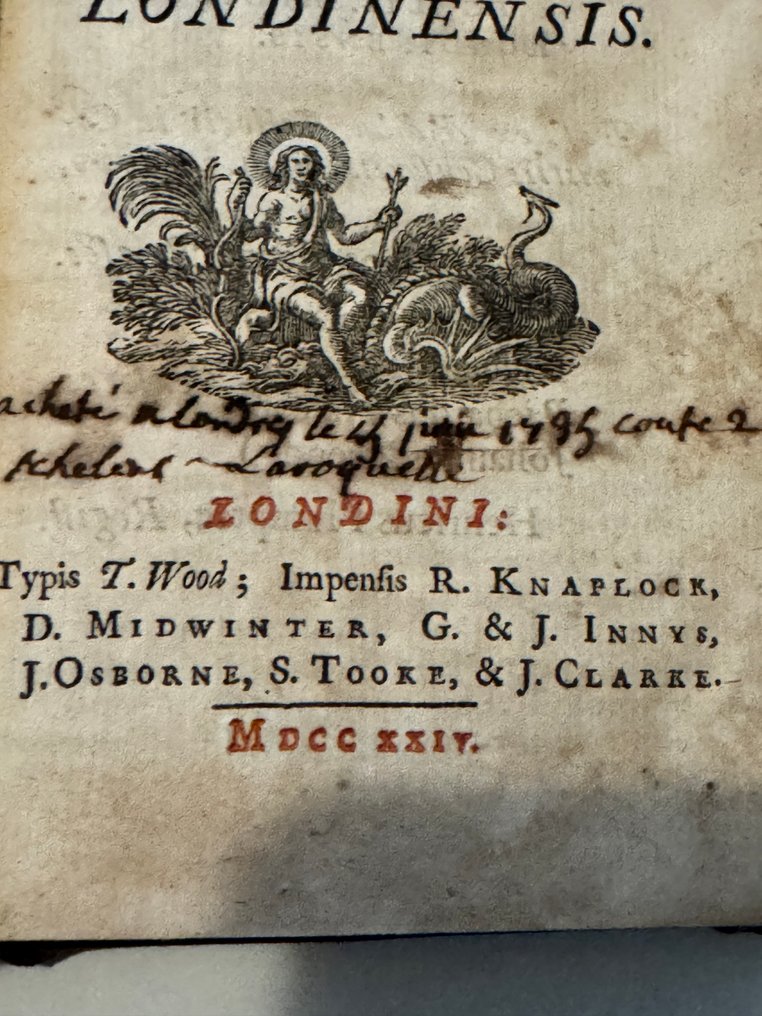 LONDINENSIS.
acheté a londres le 15 juin 1795 coute 2
schelens Laroquette
LONDINI:
Typis T. Wood; Impenſis R. KNAPLOCK,
D. MIDWINTER, G. & J. INNYS,
J. OSBORNE, S. TOOKE, & J. CLARKE.
MDCCXXIV.